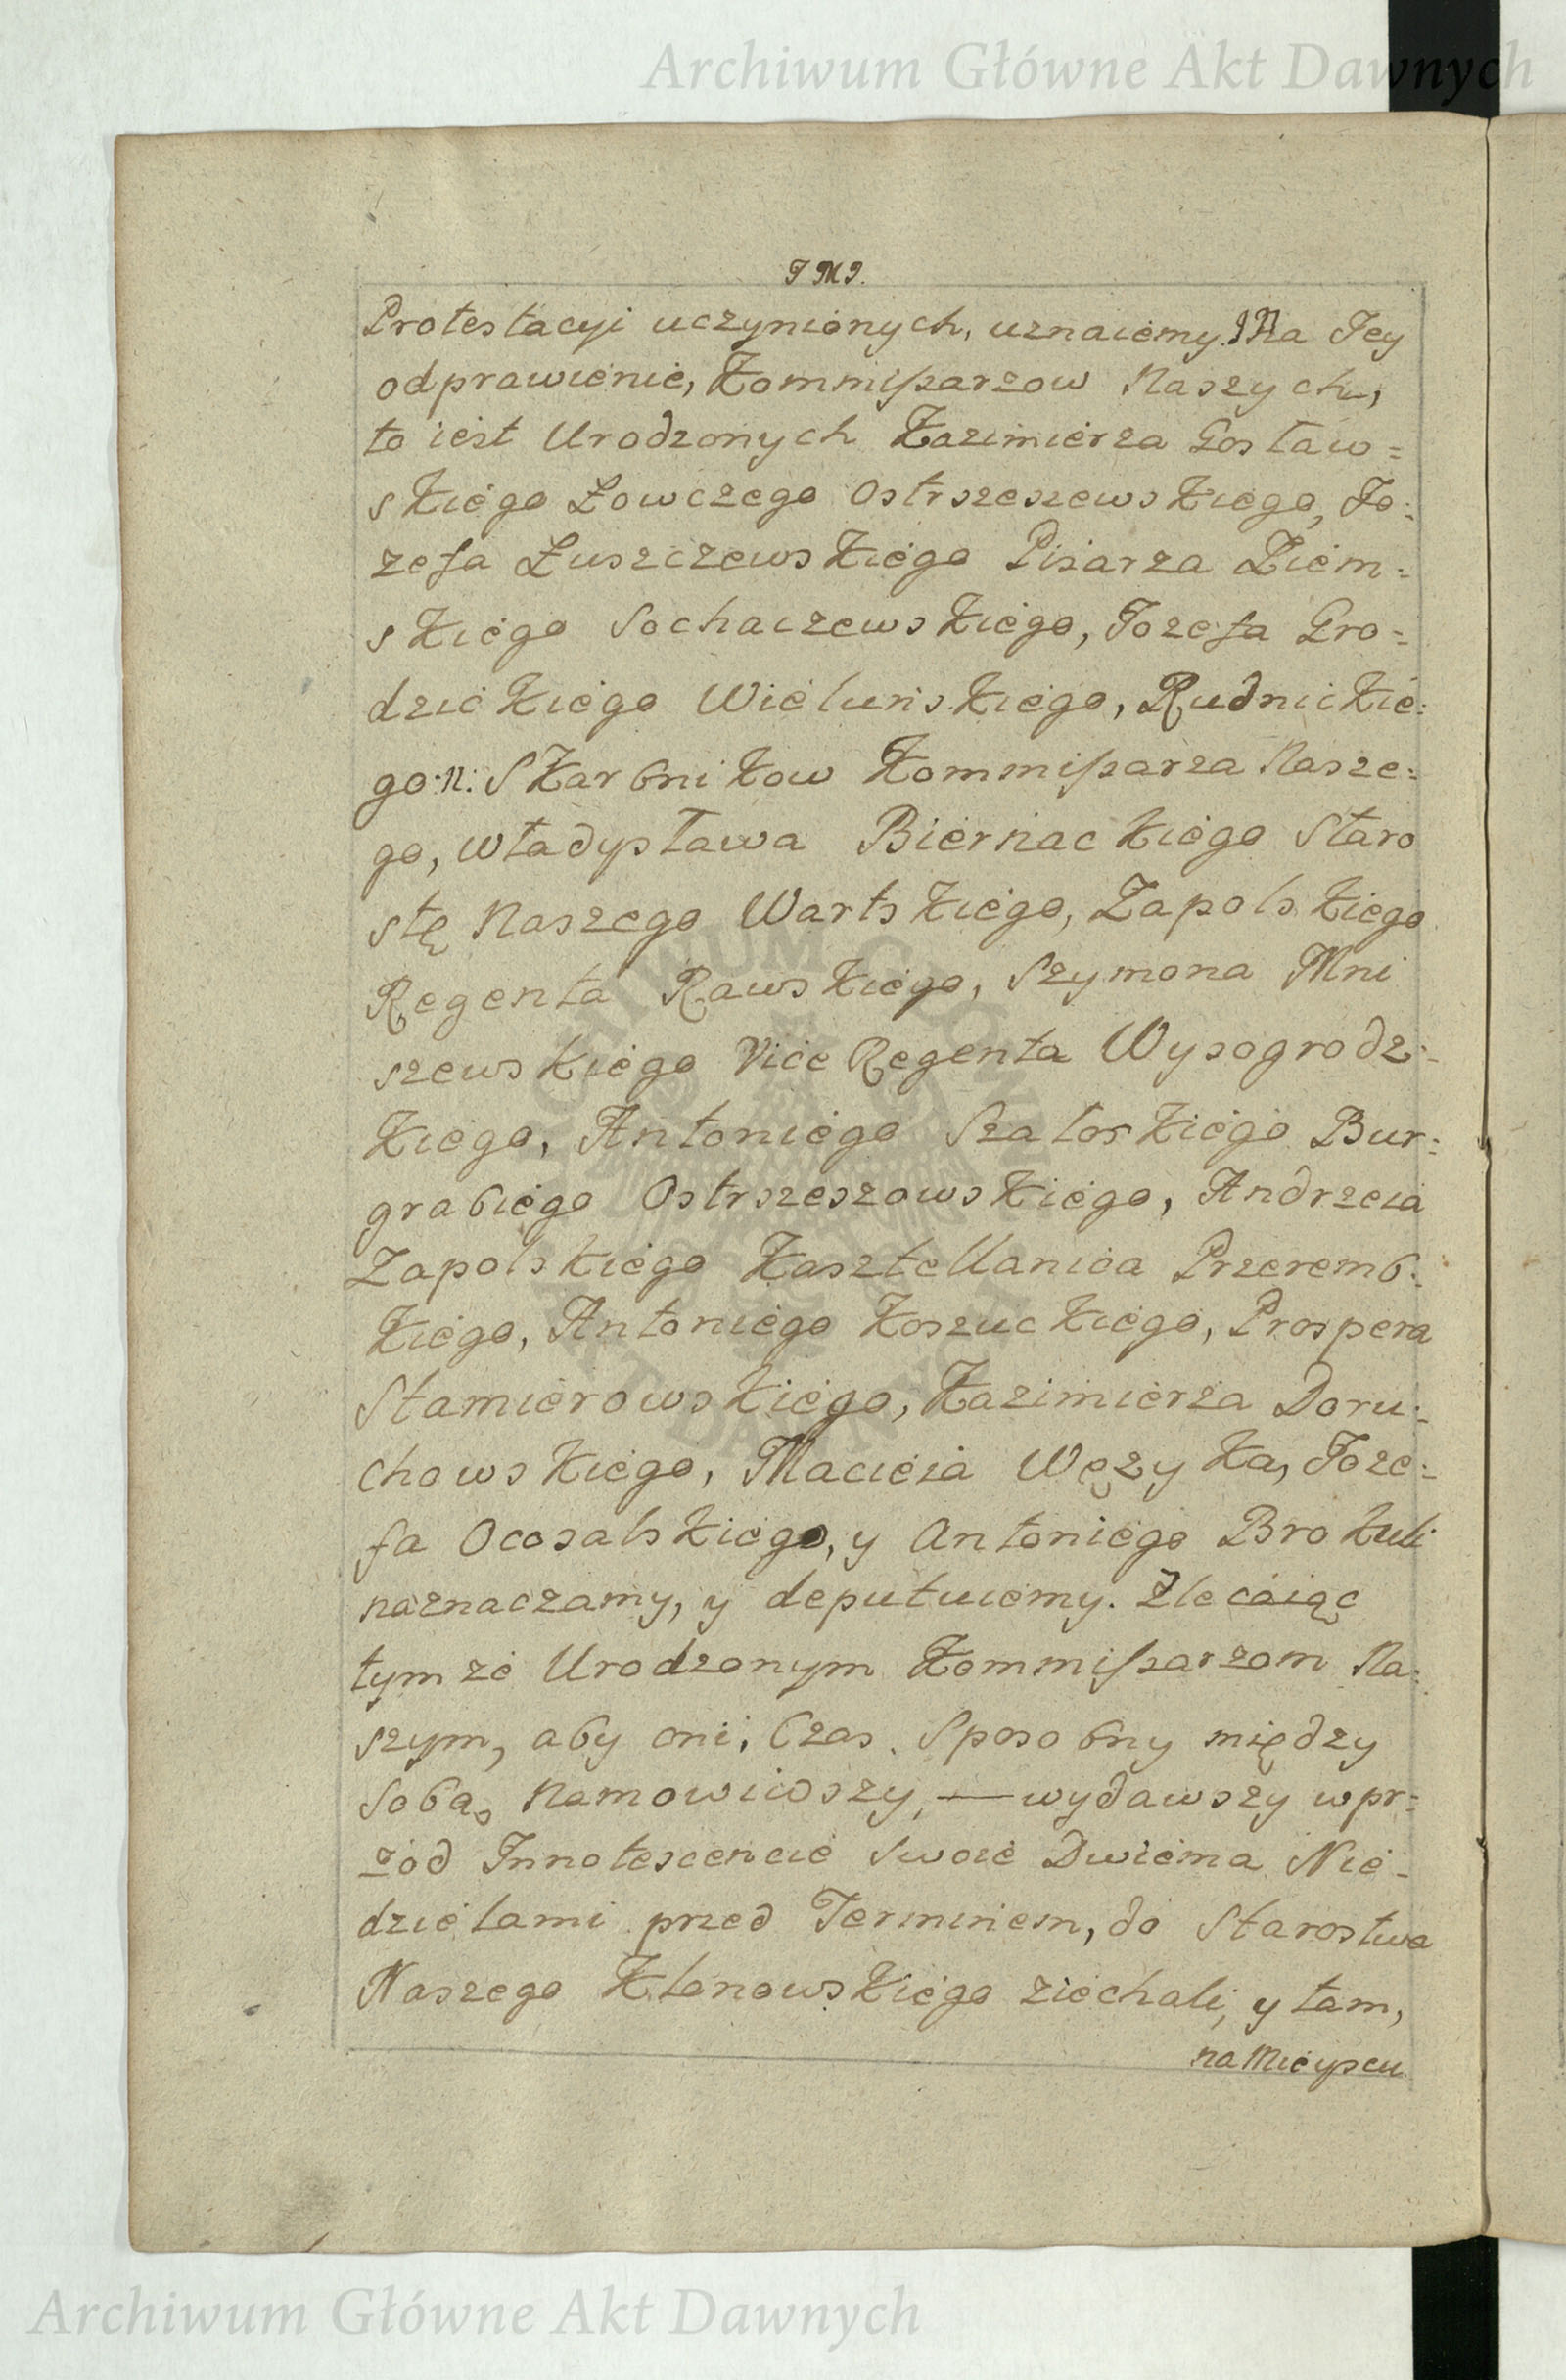 Archiwum Główne Akt Dawnych
J M J.
Protestacyi uczynionych, uznaiemy. Na Jey
odprawienie, Kommissarzow Naszych,
to iest Urodzonych Kazimierza Gosław=
skiego Łowczego Ostrszeszewskiego, Jo=
zefa Łuszczewskiego Pisarza Ziem=
skiego Sochaczewskiego, Jozefa Gro=
dzickiego Wieluńskiego, Rudnickie=
go :n: Skarbnikow Kommissarza Nasze=
go, Władysława Biernackiego Staro
stę Naszego Wartskiego, Zapolskiego
Regenta Rawskiego, Szymona Mni
szewskiego Vice Regenta Wysogrodz=
kiego, Antoniego Bur=
grabiego Ostrszeszowskiego, Andrzeia
Zapolskiego Kasztellanica Przeremb=
kiego, Antoniego Koszuckiego, Prospera
Stamierowskiego, Kazimierza Doru=
chowskiego, Macieia Wężyka, Joze=
fa Ocosalskiego, y Antoniego
naznaczamy, y deputuiemy. Zlecaiąc
tymże Urodzonym Kommissarzom Na=
szym, aby oni, Czas Sposobny między
Sobą Namowiwszy, — wydawszy wpr=
zod Innotescencie Swoie Dwiema Nie=
dzielami przed Terminem, do Starostwa
Naszego Klonowskiego ziechali, y tam,
na Mieyscu
Archiwum Główne Akt Dawnych